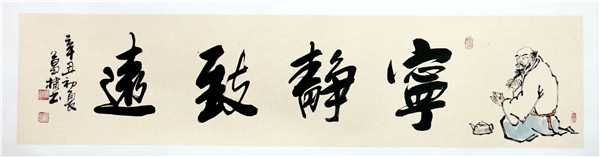 寧靜致遠
辛丑初夏
葛书